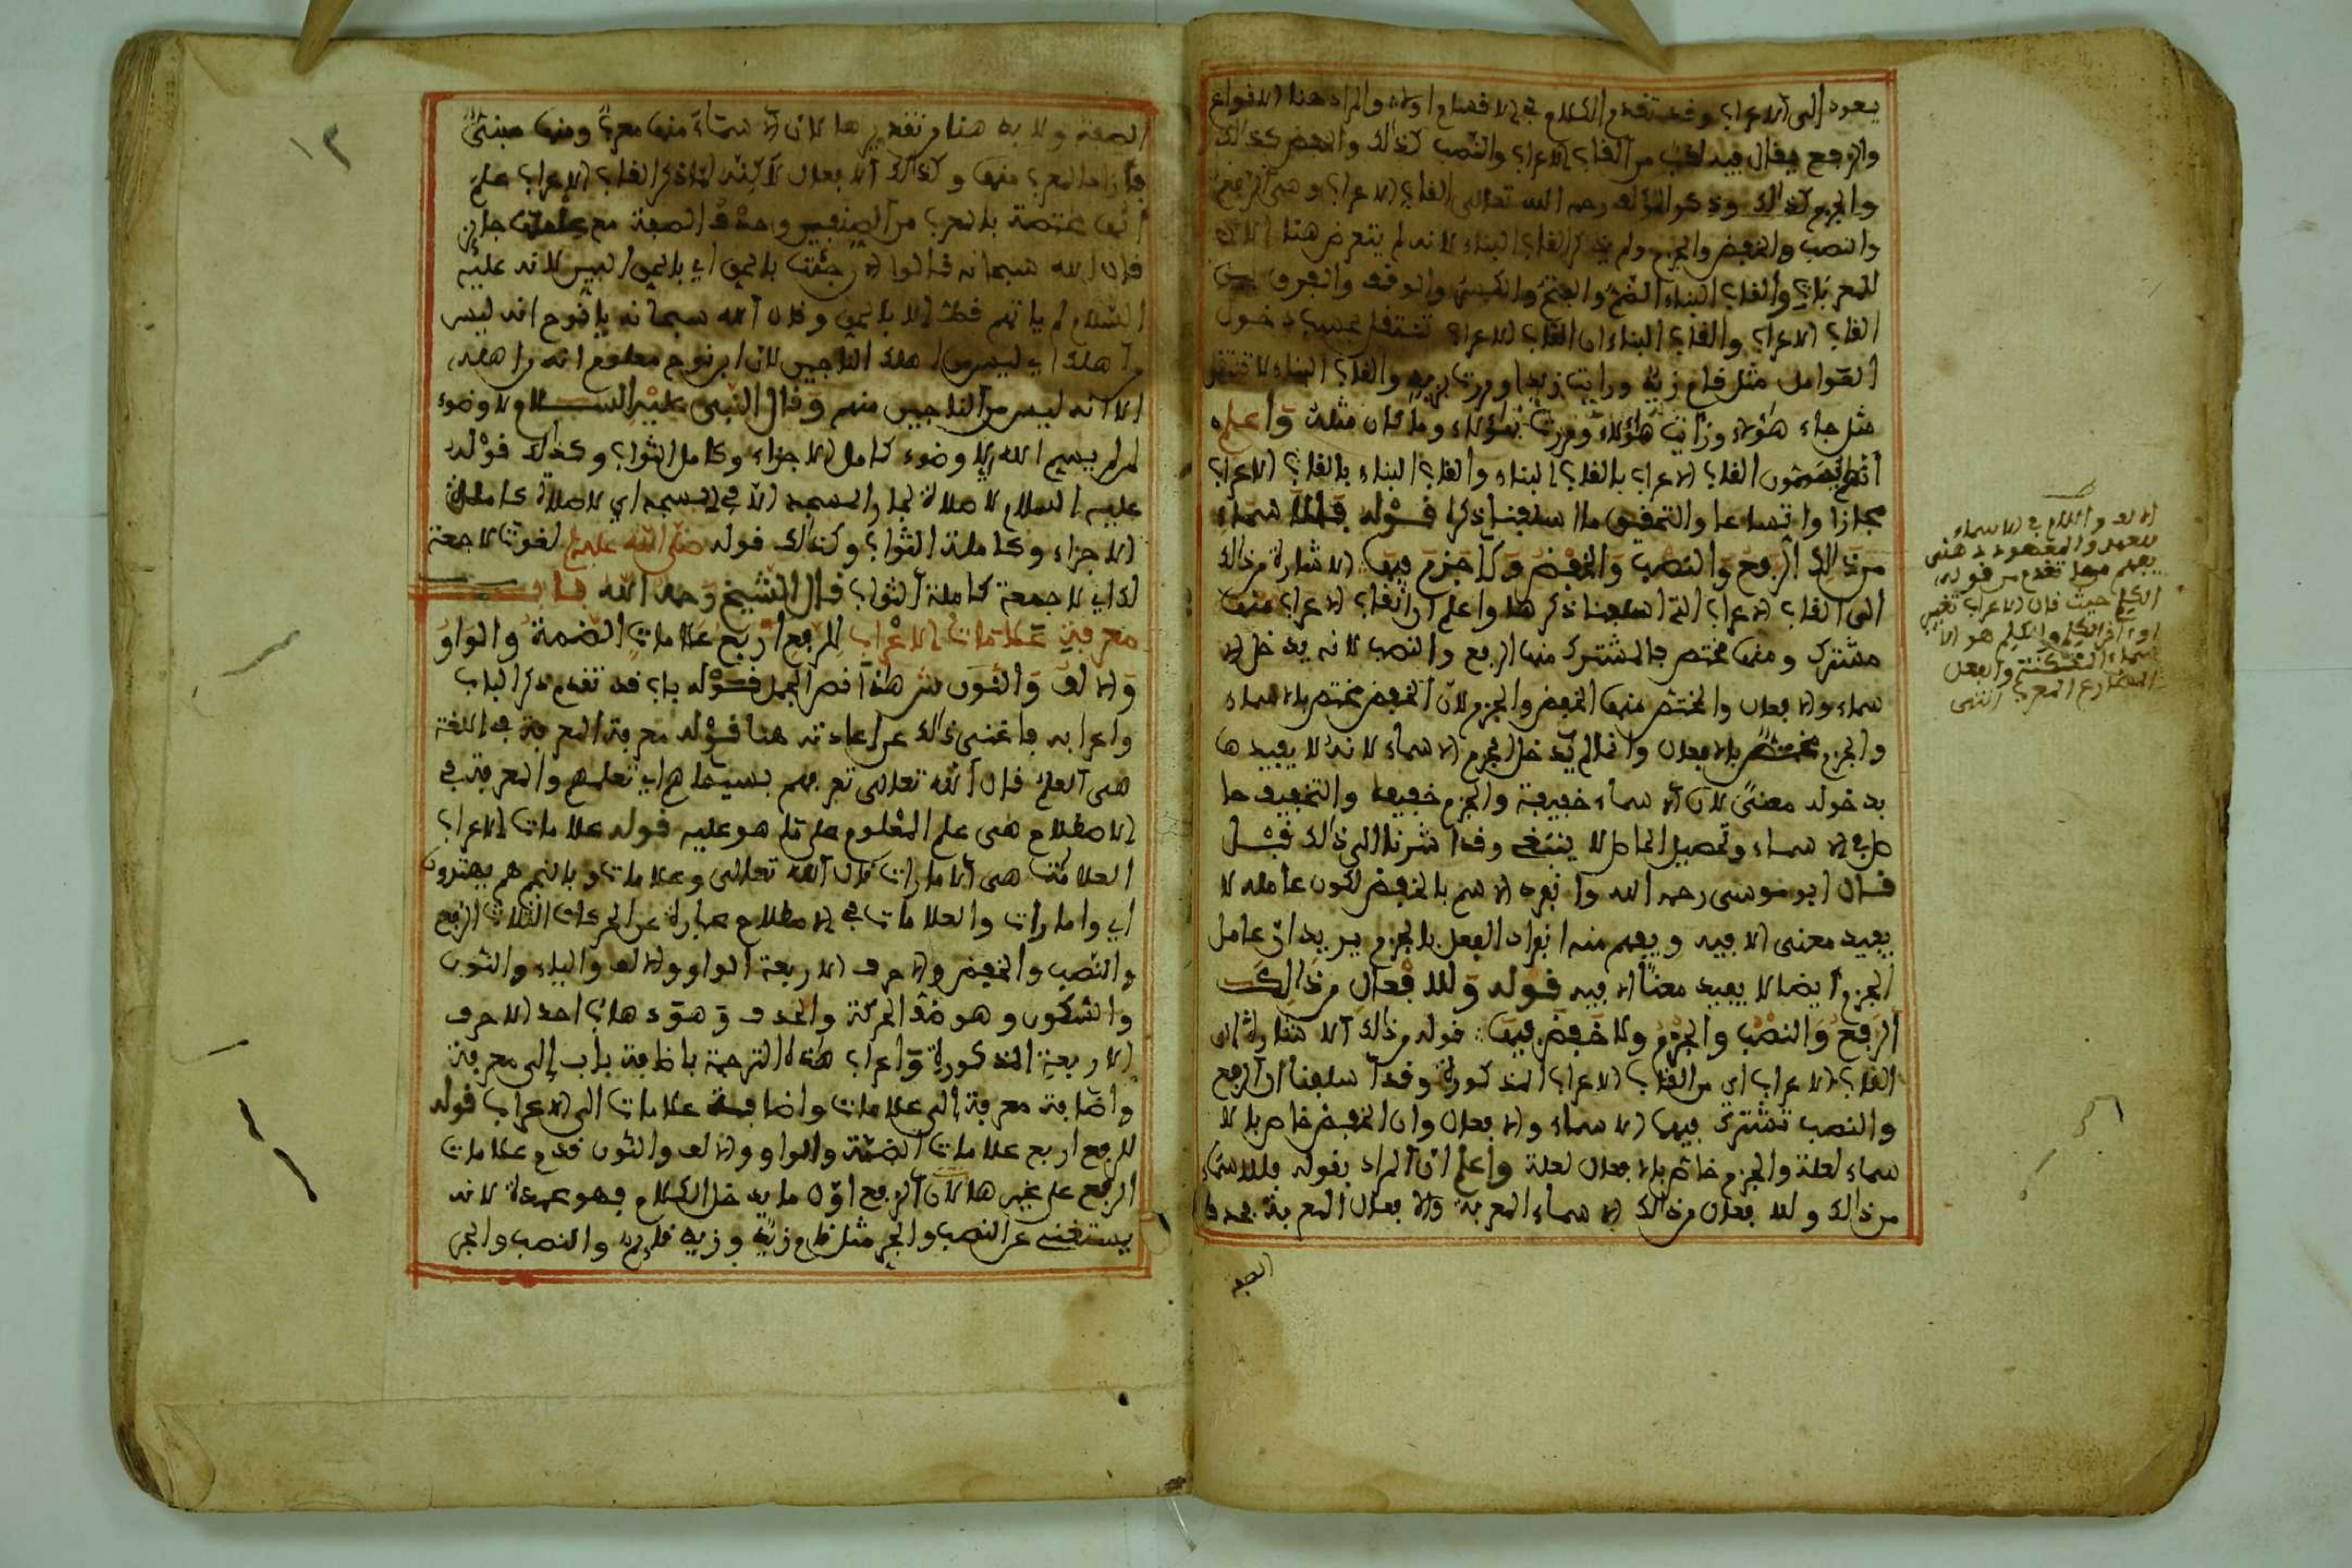 يعود إلى الاعراب وقد تقدم الكلام في الاقسام اولا والمراد هنا الانواع
والرفع يقال فيه لقب من القاب الاعراب والنصب كذالك والخفض كذالك
والجزم كذالك وذكر المؤلف رحمه الله تعالى القاب الاعراب وهي الرفع
والنصب والخفض والجزم ولم يذكر القاب البناء لانه لم يتعرض هنا الا
للمعربات والقاب البناء الضم والفتح والكسر والوقف والفرق بين
القاب الاعراب والقاب البناء ان القاب الاعراب تنتقل بحسب دخول
العوامل مثل قام زيد ورايت زيدا ومررت بزيد والقاب البناء لا تنتقل
مثل جاء هؤلاء ورأيت هؤلاء ومررت بهؤلاء وما كان مثله واعلم
انهم يسمون القاب الاعراب بالقاب البناء والقاب البناء بالقاب الاعراب
مجازا واتساعا والتحقيق ما اسلفنا ذكره قوله فللاسماء
من ذالك الرفع والنصب والخفض ولا جزم فيها الاشارة من ذالك
الى القاب الاعراب التي اسلفنا ذكرها واعلم ان القاب الاعراب منها
مشترك ومنها مختص فالمشترك منها الرفع والنصب لانه يدخل الا
سماء والافعال والمختص منها الخفض والجزم لان الخفض مختص بالاسماء
والجزم مختص بالافعال وانما لم يدخل الجزم الاسماء لانه لا يفيدها
بدخوله معنى لان الاسماء خفيفة والجزم خفيف والتخفيف حا
صل في الاسماء وتحصيل الحاصل لا ينبغي وقد اشرنا الى ذالك قبل
قال ابو موسى رحمه الله وانفرد الاسم بالخفض لكون عامله لا
يفيد معنى الا فيه ويفهم منه انفراد الفعل بالجزم يريد ان عامل
الجزم ايضا لا يفيد معنا الا فيه قوله وللافعال من ذالك
الرفع والنصب والجزم ولا خفض فيها قوله من ذالك الاشارة الى
القاب الاعراب اي من القاب الاعراب المذكورة وقد اسلفنا ان الرفع
والنصب تشترك فيها الاسماء والافعال وان الخفض خاص بالا
سماء لعلة والجزم خاص بالافعال لعلة واعلم ان المراد بقوله فللاسماء
من ذالك وللافعال من ذالك الاسماء المعربة والافعال المعربة فحذف
الصفة
الالف واللام في الاسماء
للعهد والمعهود ذهني
يفهم مما تقدم من قوله
الكلم حيث قال الاعراب تغيير
اواخر الكلم والكلم هو الا
سماء المتمكنة والفعل
المضارع المعرب انتهى
١٢
الصفة ولا بد هنا من تقديرها لان الاسماء منها معرب ومنها مبني
فأراد المعرب منها وكذالك الافعال لاكنه لما ذكر القاب الاعراب علم
انها مختصة بالمعرب من الصنفين وحذف الصفة مع علمها جائز
قال الله سبحانه قالوا الان جئت بالحق اي بالحق البين لانه عليه
السلام لم ياتهم قط الا بالحق وقال الله سبحانه يا نوح انه ليس
من اهلك اي ليس من اهلك الناجين لان ابن نوح معلوم انه من اهله
الا انه ليس من الناجين منهم وقال النبي عليه السلام لا وضوء
لمن لم يسم الله اي لا وضوء كامل الاجزاء وكامل الثواب وكذالك قوله
عليه السلام لا صلاة لجار المسجد الا في المسجد اي لا صلاة كاملة
الاجزاء وكاملة الثواب وكذالك قوله صلى الله عليه لغوت لا جمعة
لك اي لا جمعة كاملة الثواب قال الشيخ رحمه الله باب
معرفة علامات الاعراب للرفع اربع علامات الضمة والواو
والالف والنون ش هذا افصح الجمل قوله باب قد تقدم ذكر الباب
واعرابه فاغنى ذالك عن اعادته هنا قوله معرفة المعرفة في اللغة
هي العلم قال الله تعالى تعرفهم بسيماهم اي تعلمهم والمعرفة في
الاصطلاح هي علم المعلوم على ما هو عليه قوله علامات الاعراب
العلامات هي الامارات قال الله تعالى وعلامات وبالنجم هم يهتدون
اي وامارات والعلامات في الاصطلاح عبارة عن الحركات الثلاث الرفع
والنصب والخفض والاحرف الاربعة الواو والالف والياء والنون
والسكون وهو ضد الحركة والحذف وهو ذهاب احد الاحرف
الاربعة المذكورة واعراب هذه الترجمة باضافة باب إلى معرفة
واضافة معرفة الى علامات واضافة علامات الى الاعراب قوله
للرفع اربع علامات الضمة والواو والالف والنون قدم علامات
الرفع على غيرها لان الرفع اول ما يدخل الكلام فهو عمدة لانه
يستغنى عن النصب والجر مثل قام زيد وزيد قائم والنصب والجر